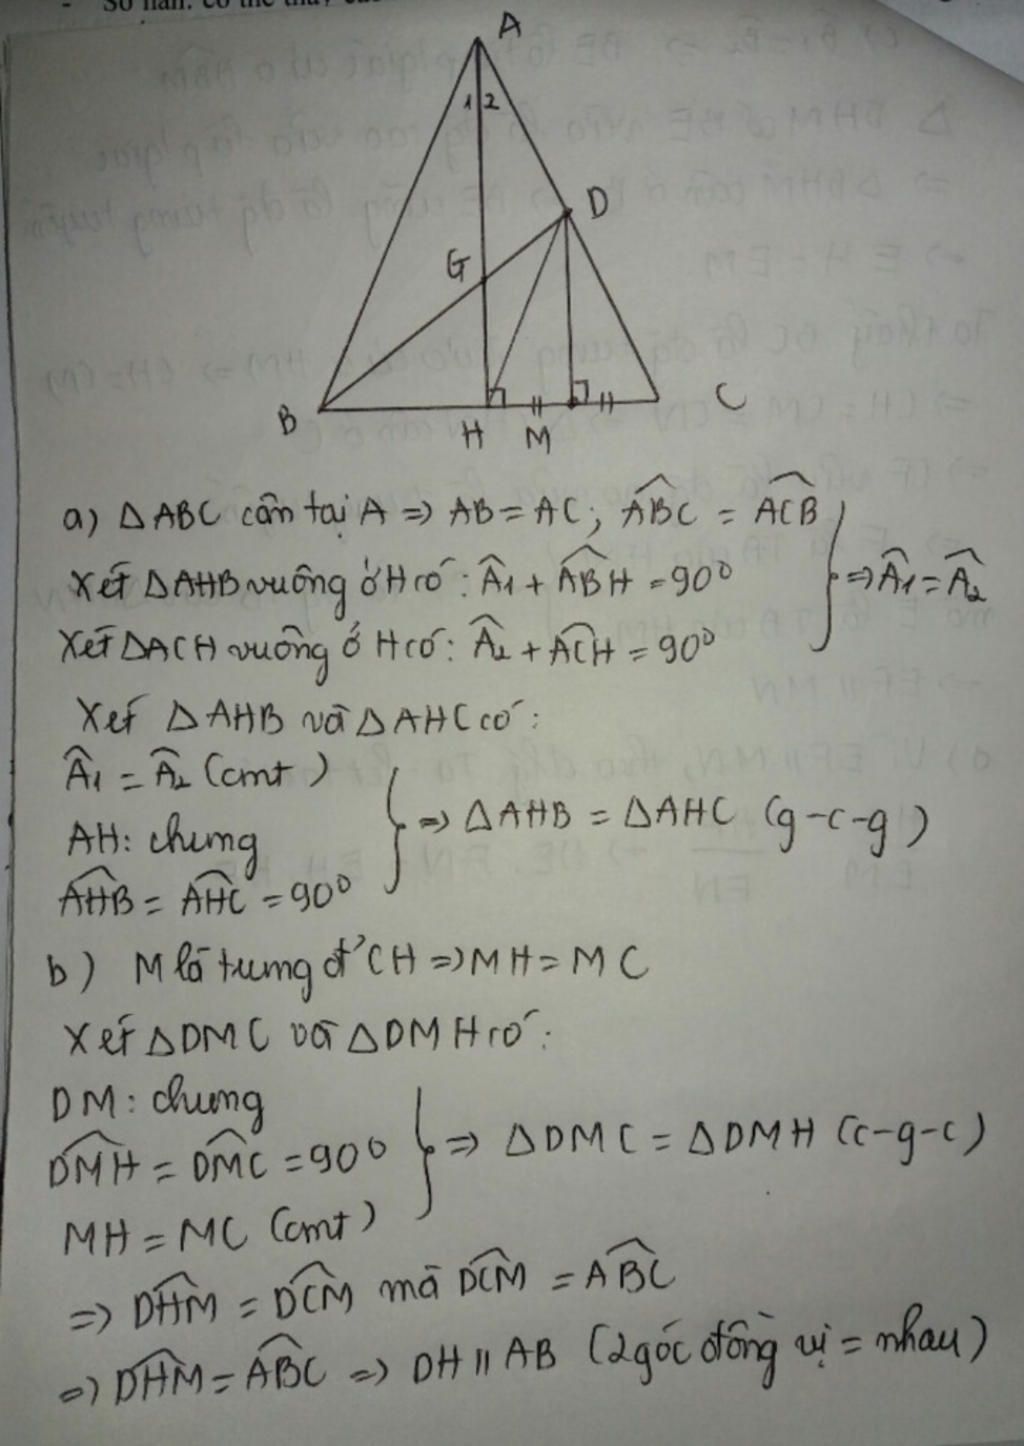 A
1 2
D
G
B
H
M
C
a) △ABC cân tại A => AB = AC; \widehat{ABC} = \widehat{ACB}
Xét △AHB vuông ở H có: \widehat{A}1 + \widehat{ABH} = 90° => \widehat{A}1 = \widehat{A}2
Xét △ACH vuông ở H có: \widehat{A}2 + \widehat{ACH} = 90°
Xét △AHB và △AHC có:
\widehat{A}1 = \widehat{A}2 (cmt)
AH: chung => △AHB = △AHC (g-c-g)
\widehat{AHB} = \widehat{AHC} = 90°
b) M là trung đ' CH => MH = MC
Xét △DMC và △DMH có:
DM: chung
\widehat{DMH} = \widehat{DMC} = 90° => △DMC = △DMH (c-g-c)
MH = MC (cmt)
=> \widehat{DHM} = \widehat{DCM} mà \widehat{DCM} = \widehat{ABC}
=> \widehat{DHM} = \widehat{ABC} => DH // AB (2 góc đồng vị = nhau)